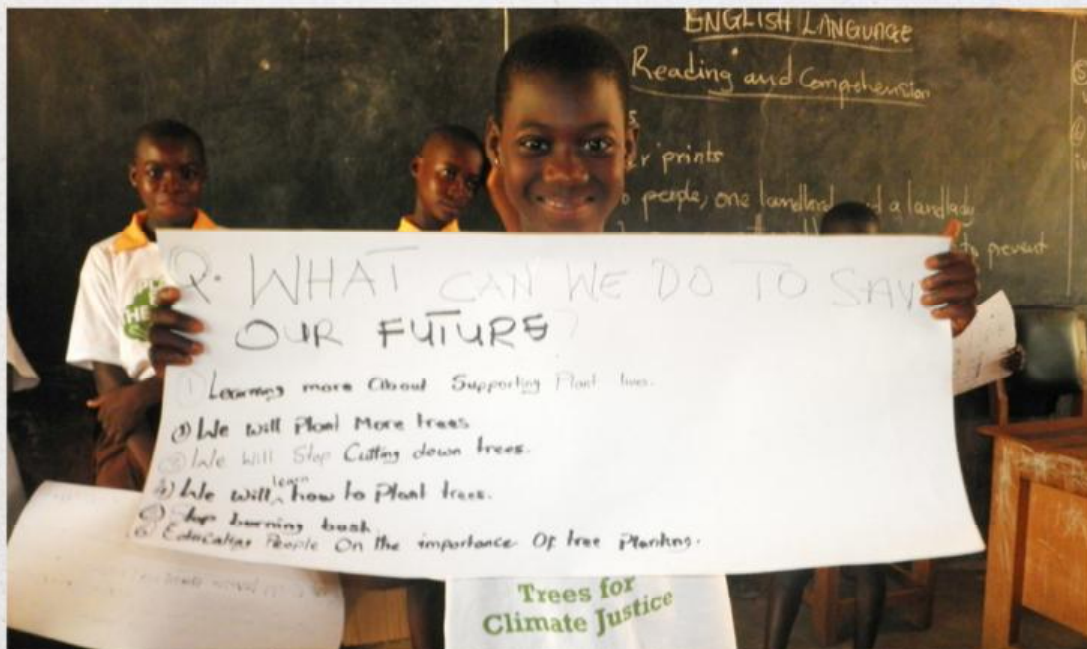 ENGLISH LANGUAGE
Reading and Comprehension
prints
people, one landlord a landlady
to prevent
HE
Q. WHAT CAN WE DO TO SAV
OUR FUTURE?
① Learning more About Supporting Plant lives.
We will Plant More trees
We Will Stop Cutting down trees.
4) We will learn how to Plant trees.
Stop burning bush
6 Educating People On the importance Of tree Planting.
Trees for
Climate Justice